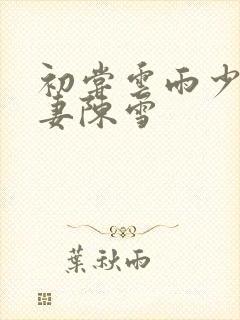 初尝雲雨少
妻陳雪
葉秋雨